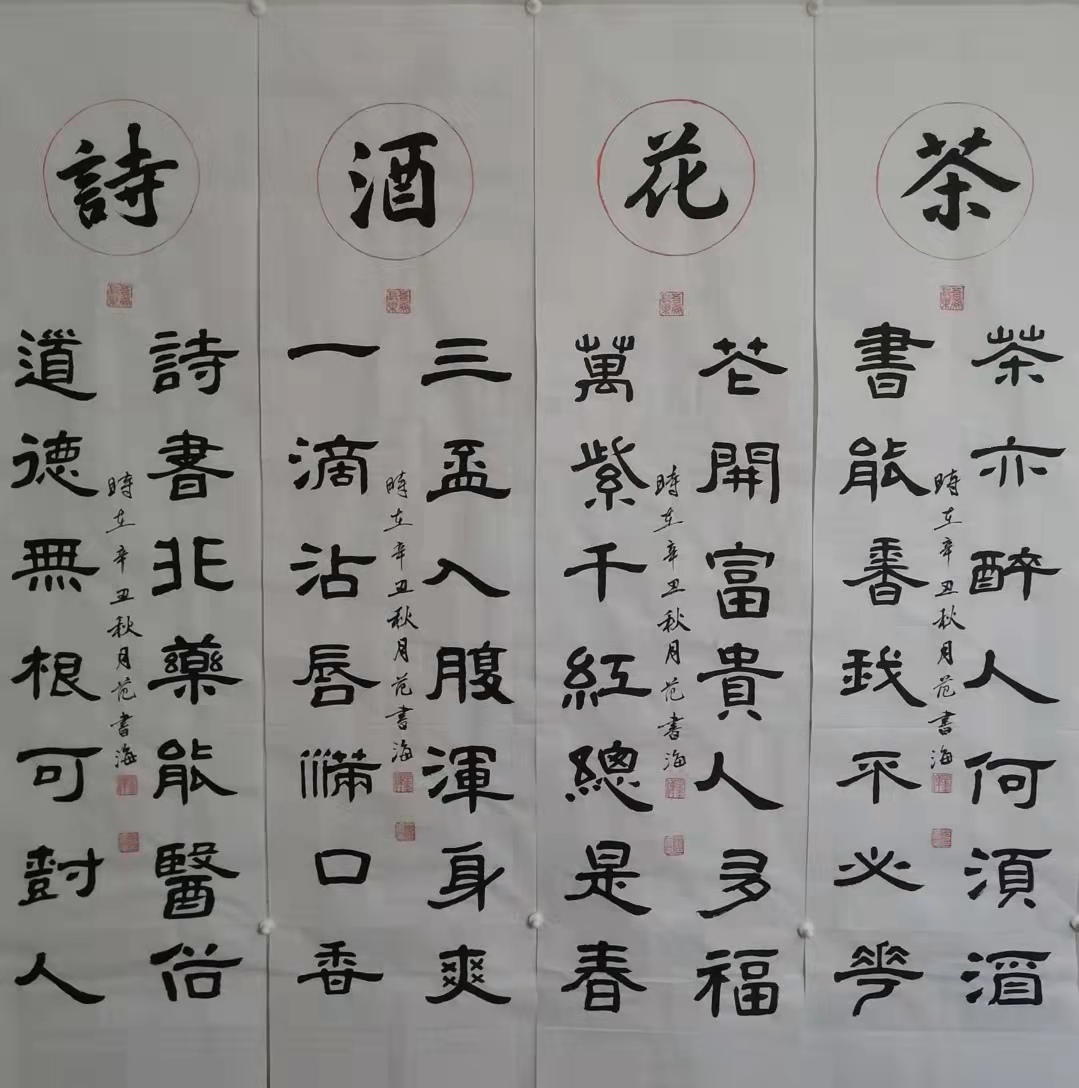 茶
茶亦醉人何須酒
書能香我不必華
時在辛丑秋月范書海
花
花開富貴人多福
萬紫千紅總是春
時在辛丑秋月范書海
酒
三盃入腹渾身爽
一滴沾唇滿口香
時在辛丑秋月范書海
詩
詩書非藥能醫俗
道德無根可樹人
時在辛丑秋月范書海